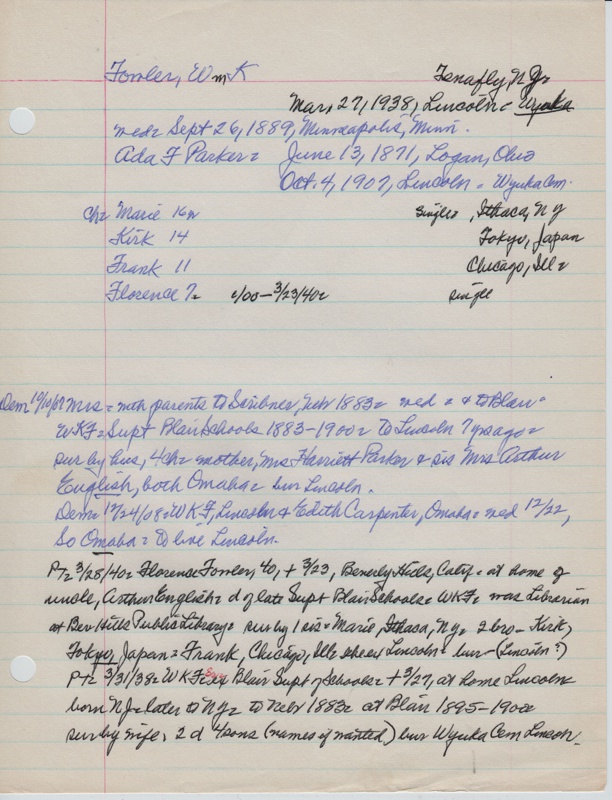 Fowler, Wm K Tenafly, N J=
Mar, 27, 1938, Lincoln = Wyuka
wed= Sept 26, 1889, Minneapolis, Minn.
Ada F Parker= June 13, 1871, Logan, Ohio
Oct. 4, 1907, Lincoln = Wyuka Cem.
Ch= Marie 16 single= , Ithaca, N Y
Kirk 14 Tokyo, Japan
Frank 11 Chicago, Ill=
Florence 7= c/00 - 3/23/40= single
Dem 10/10/07 Mrs = with parents to Scribner, Nebr 1883= wed = & to Blair=
WKF= Supt Blair Schools 1883-1900= To Lincoln 7 yrs ago=
sur by hus, 4 ch= mother, Mrs Harriett Parker & sis Mrs Arthur
English, both Omaha= bur Lincoln.
Dem= 12/24/08= WKF, Lincoln & Edith Carpenter, Omaha= wed 12/22,
So Omaha= To live Lincoln.
PT= 3/28/40= Florence Fowler, 40, + 3/23, Beverly Hills, Calif= at home of
uncle, Arthur English= d of late Supt Blair Schools= WKF= was Librarian
at Bev Hills Public Library= sur by 1 sis= Marie, Ithaca, Ny= 2 bro- Kirk,
Tokyo, Japan= Frank, Chicago, Ill= Lincoln= bur- (Lincoln?)
PT= 3/31/38= WKF= Blair Supt of Schools= + 3/27, at home Lincoln=
born NJ= later to Ny= to Nebr 1883= at Blair 1895-1900=
sur by wife, 2 d 4 sons (names if wanted) bur Wyuka Cem Lincoln.